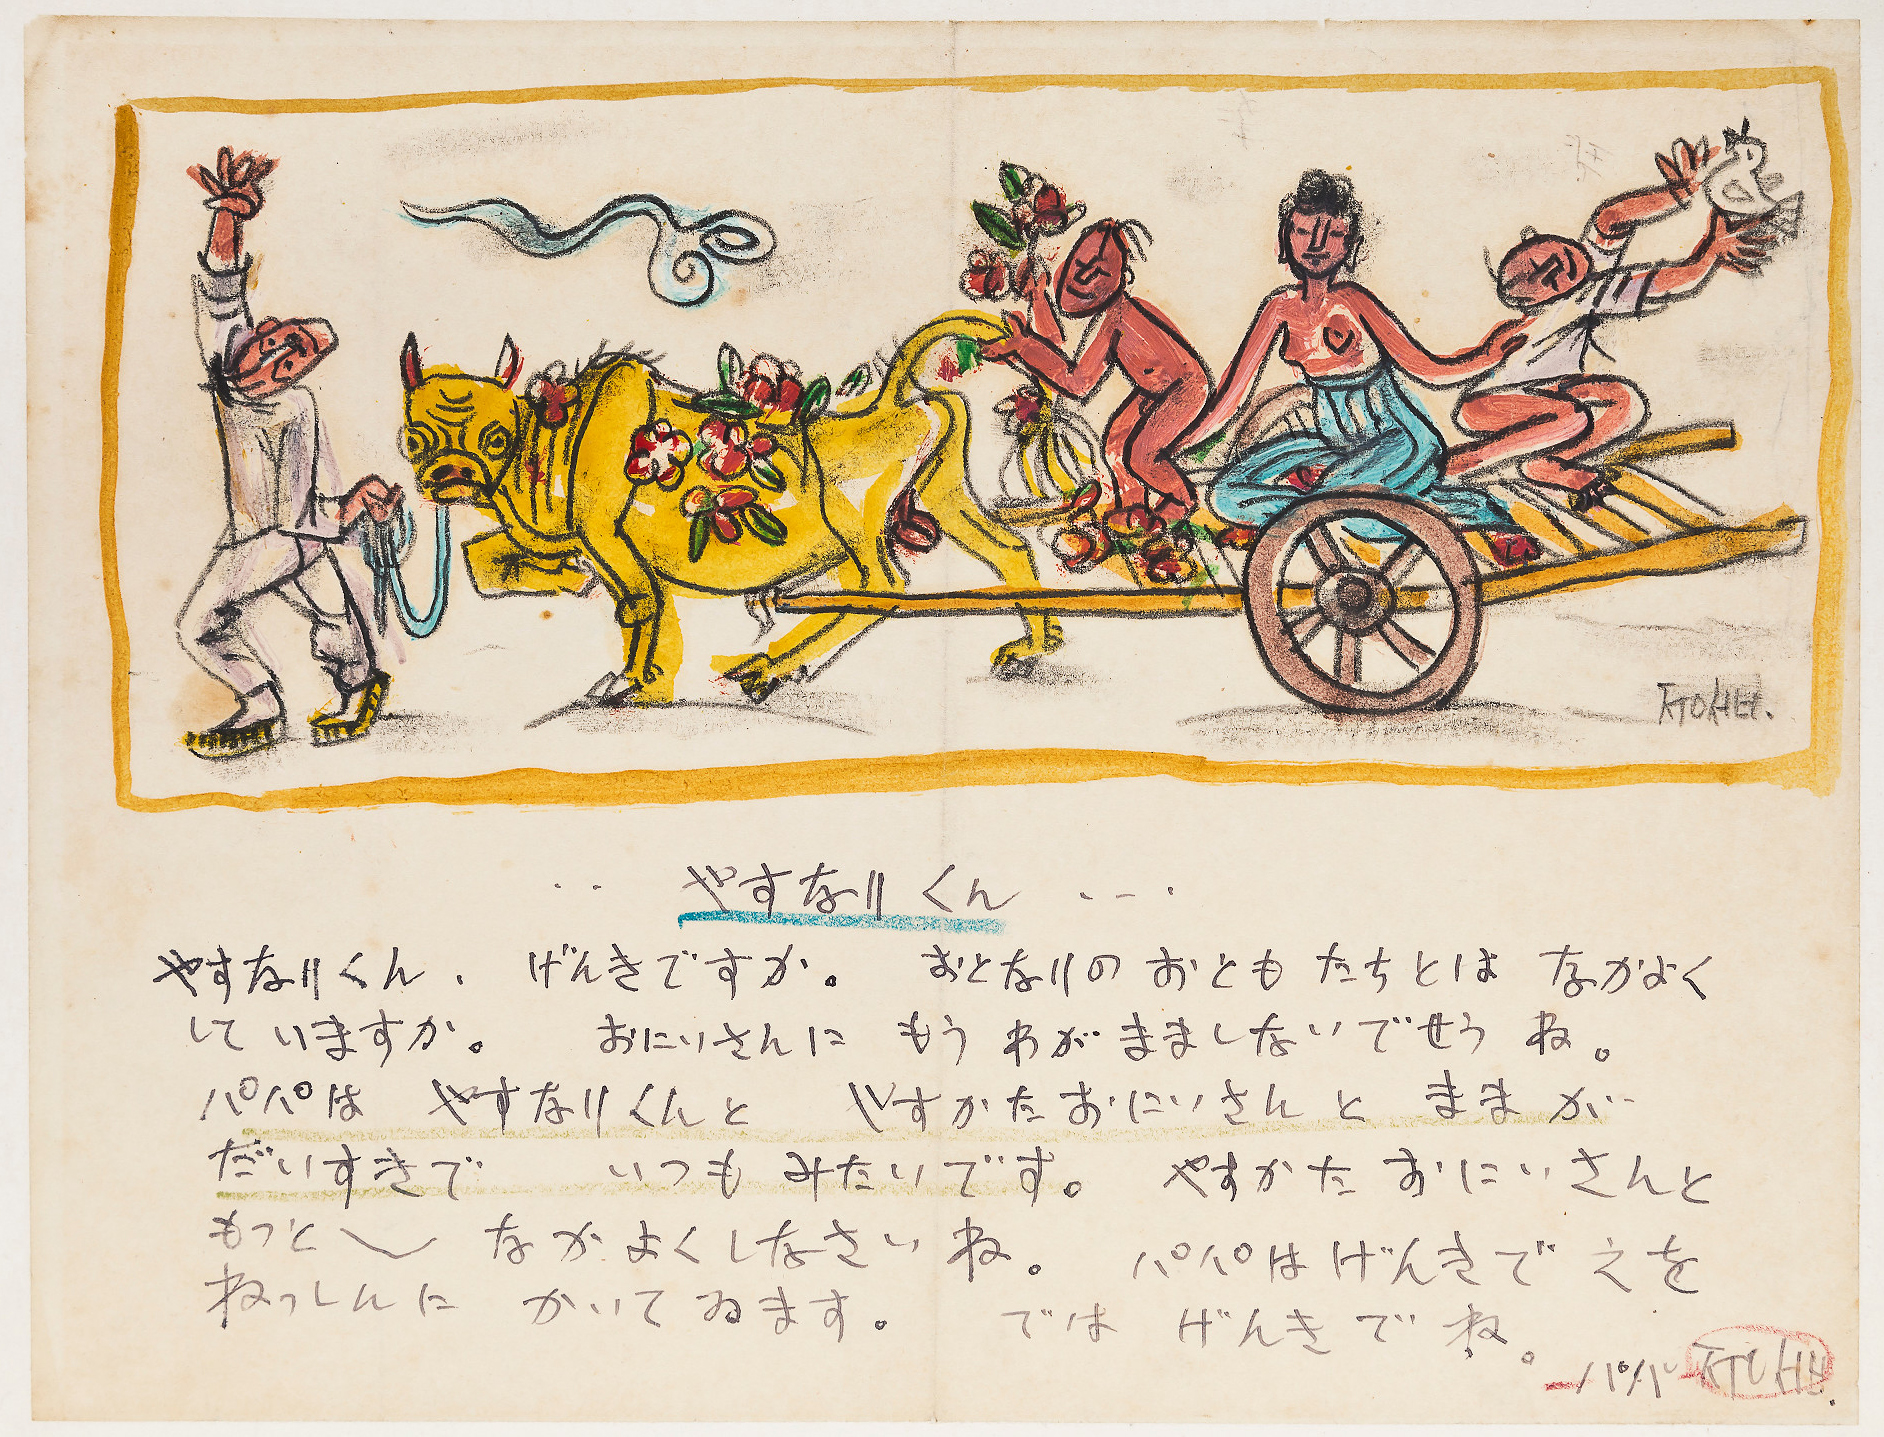 KTOHEI.
‥ やすなりくん ‥‥
やすなりくん. げんきですか。 おとなりの おともたちとは なかよく
して いますか。 おにいさんに もう わがまましないでせうね。
パパは やすなりくんと やすかたおにいさんと ままが
だいすきで いつも みたいです。 やすかた おにいさんと
もっと〵 なかよくしなさいね。 パパはげんきで えを
ねっしんに かいて ゐます。 では げんきでね。
パパ